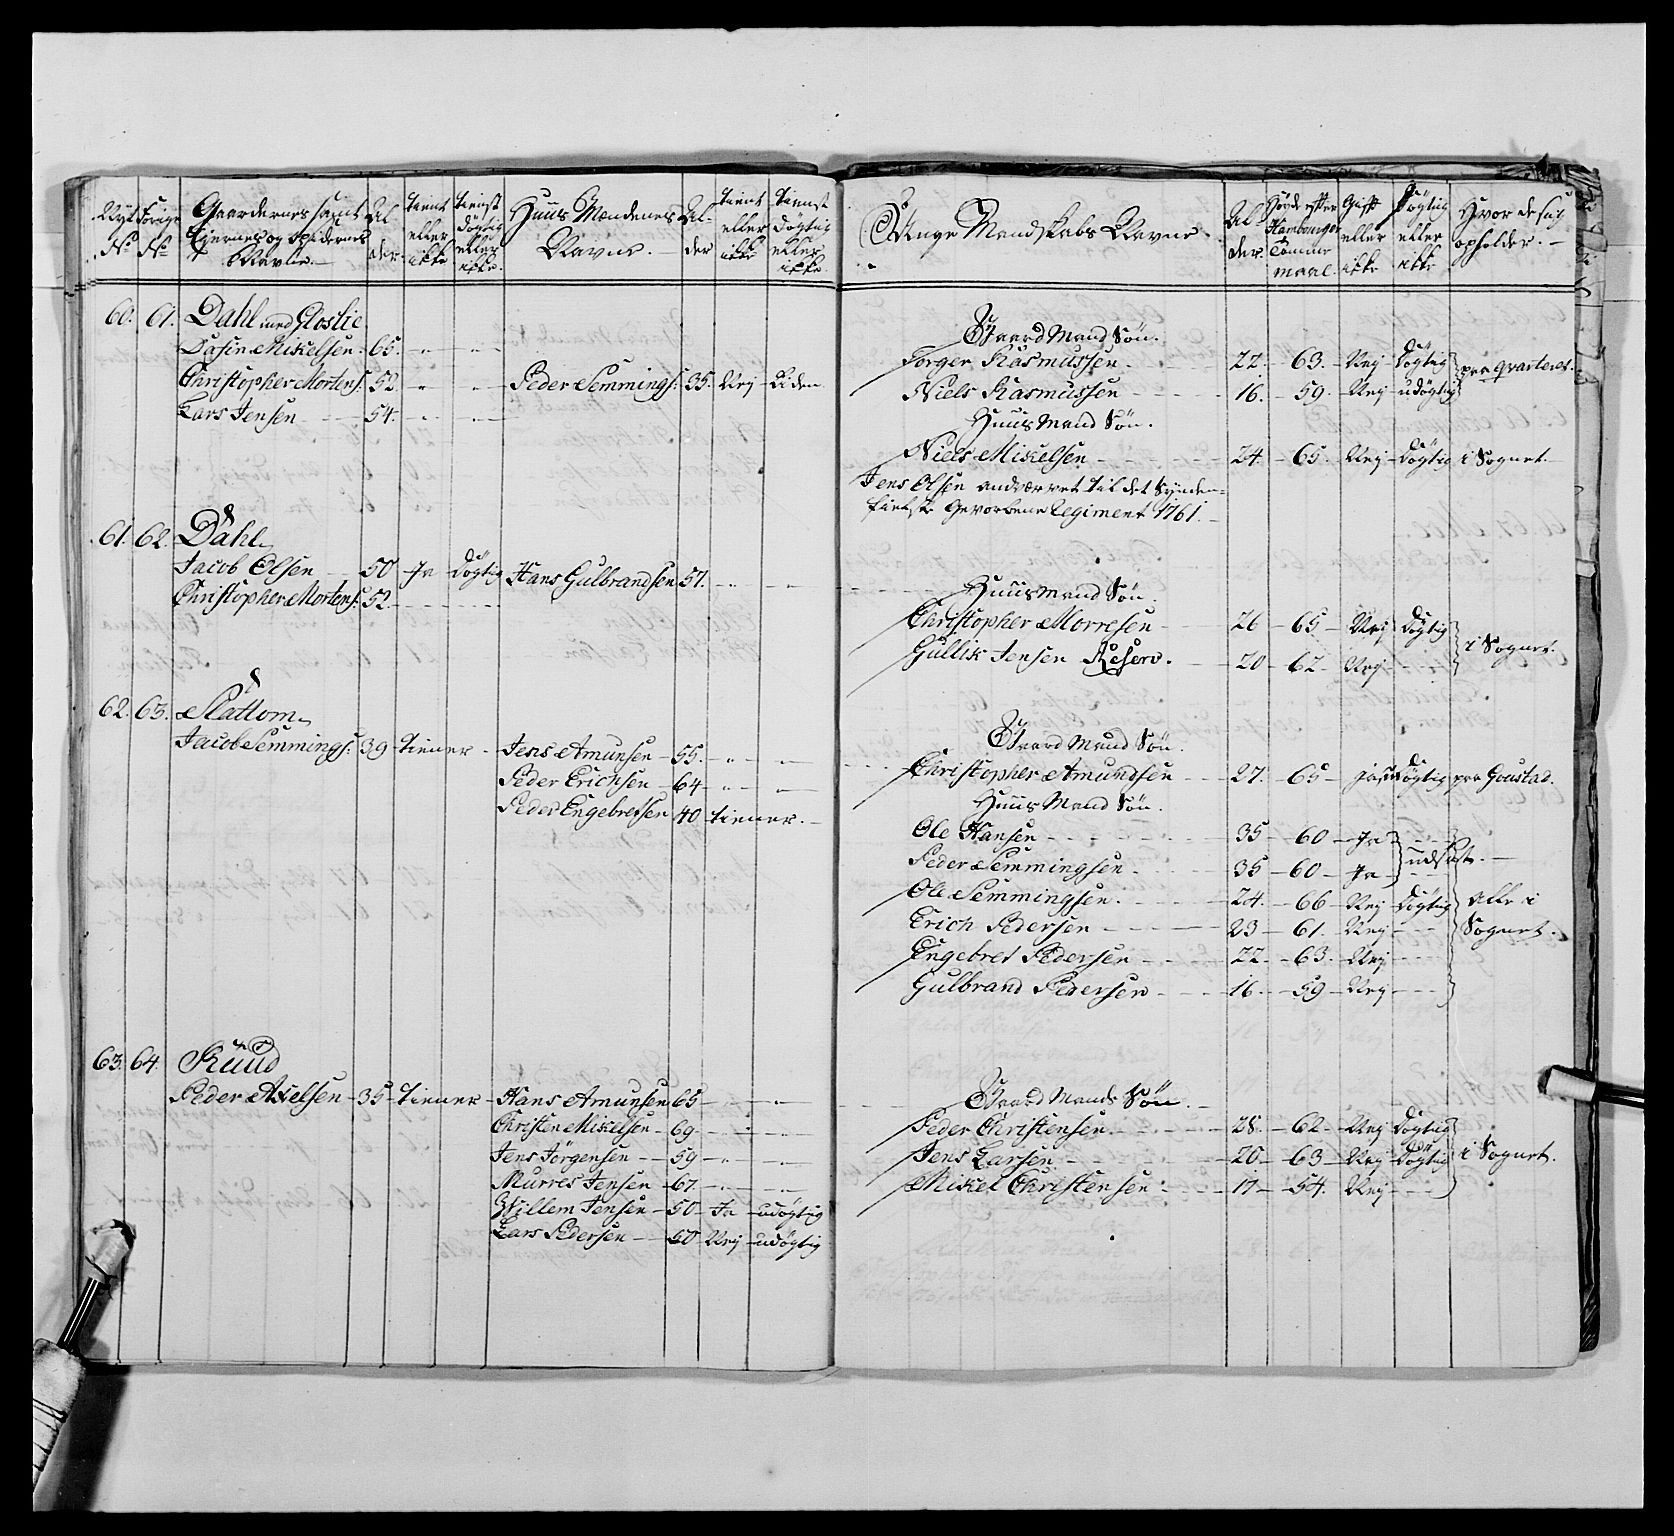 Nye No
Forige No
Gaardernes samt Ejernes og Opsidernes Navne.
Alder.
tient eller ikke
tienst døgtig eller ikke.
Huus Mændenes Navne.
Alder
tient eller ikke
tienst døgtig eller ikke.
60. 61. Dahl med Gloslie
Mikelsen. 65.
Christopher Mortens: 52 Peder Semmings: 35. Nej Liden
Lars Jensen 54.
61. 62. Dahl
Jacob Olsen 50 Ja døgtig Hans Gulbrandsen 57.
Christopher Mortens: 52
62. 63. Slattom
Jacob Semmings: 39 tiener Jens Amunsen 55.
Peder Erichsen 64
Peder Engebretsen 40 tiener.
63. 64. Ruud
Peder Axelsen 35 tiener Hans Amunsen 65
Christen Mikelsen 69
Jens Jörgensen 59
Murres Jensen 67.
Willem Jensen 50 Ja udøgtig
Lars Pedersen 60 Nej udøgtig
Unge Mandskabs Navne.
Alder.
Høyde efter Hambourger Tomme maal.
Gift eller ikke
Døgtig eller ikke
Hvor de sig opholder.
Gaard Mand Søn.
Torger Rasmussen 22. 63. Nej Døgtig paa qvarteret.
Niels Rasmussen 16. 59. Nej udøgtig
Huus Mand Søn.
Niels Mikelsen 24. 65. Nej Døgtig i Sognet.
Jens Olsen andværvet til det Synden-
fielske Gevorbene Regiment 1761.
Huus Mand Søn.
Christopher Morresen 26 65. Nej Døgtig i Sognet.
Gullik Jensen Reserv. 20 62. Nej
Gaard Mand Søn.
Christopher Amundsen 27. 65 Døgtig paa Goustad.
Huus Mand Søn.
Ole Hansen 35 60 Ja
Peder Semmingsen 35 60 Ja udsat.
Ole Semmingsen 24. 66 Nej Døgtig alle i
Erich Pedersen 23 61. Nej Sognet.
Engebret Pedersen 22. 63. Nej
Gulbrand Pedersen 16. 59 Nej
Gaard Mands Søn.
Peder Christensen 28. 62 Nej Døgtig
Jens Larsen 20. 63 Nej Døgtig i Sognet.
Mikel Christensen 17 54. Nej